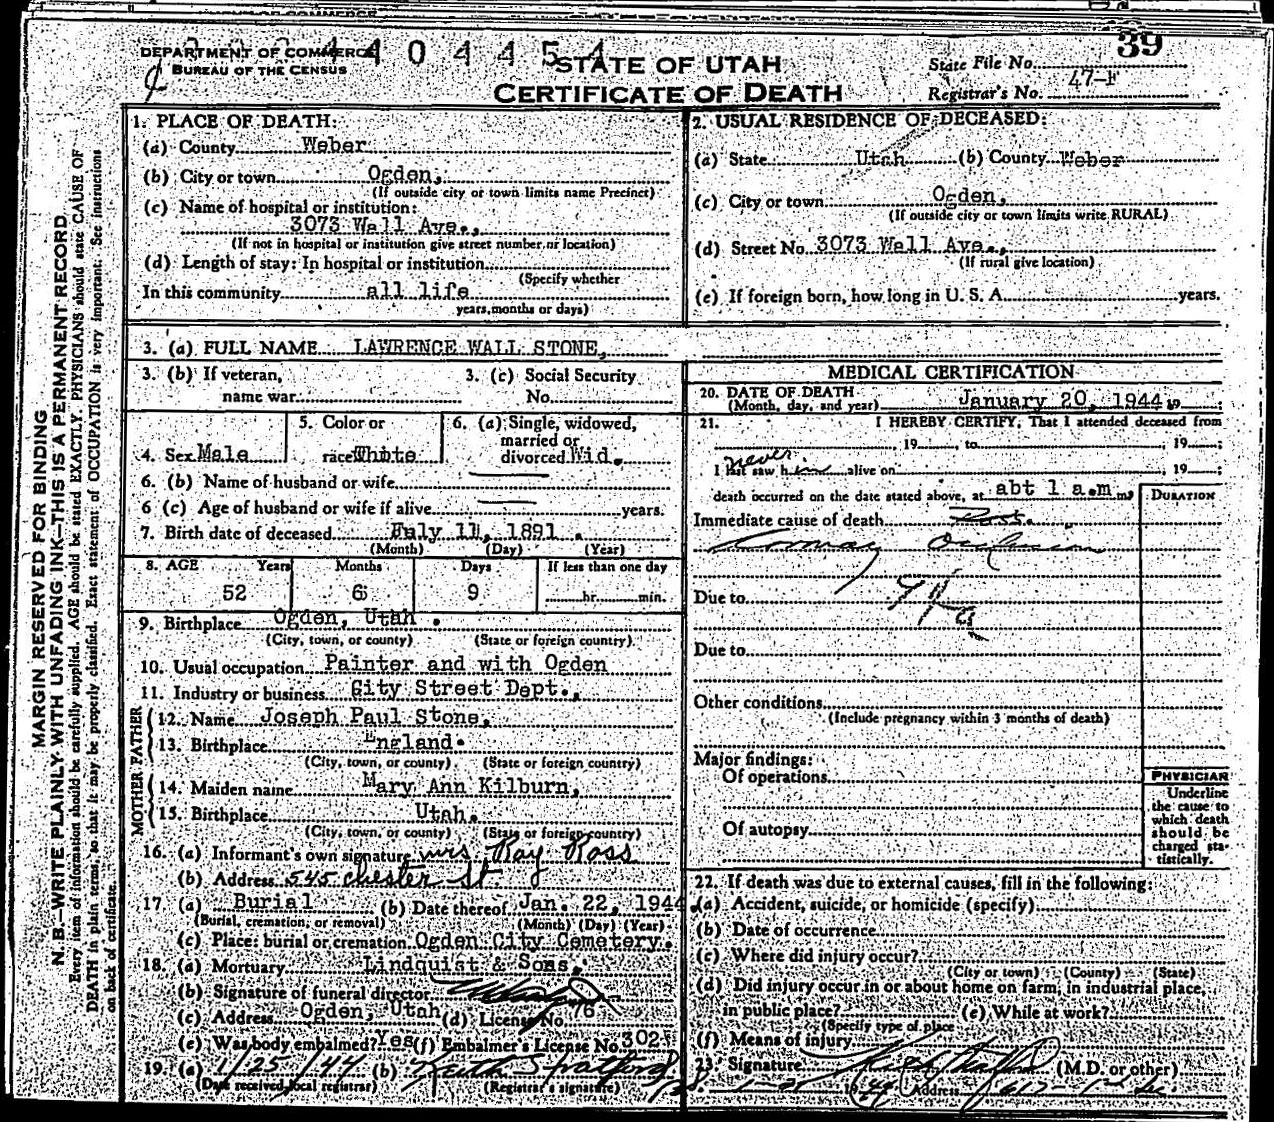 39
DEPARTMENT OF COMMERCE
BUREAU OF THE CENSUS
4 4 0 4 4 5 4
STATE OF UTAH
CERTIFICATE OF DEATH
State File No.
Registrar's No. 47-F
MARGIN RESERVED FOR BINDING
N. B.—WRITE PLAINLY WITH UNFADING INK—THIS IS A PERMANENT RECORD
Every item of information should be carefully supplied. AGE should be stated EXACTLY. PHYSICIANS should state CAUSE OF
DEATH in plain terms, so that it may be properly classified. Exact statement of OCCUPATION is very important. See instructions
on back of certificate.
1. PLACE OF DEATH:
(a) County Weber
(b) City or town Ogden,
(If outside city or town limits name Precinct)
(c) Name of hospital or institution:
3073 Wall Ave.,
(If not in hospital or institution give street number or location)
(d) Length of stay: In hospital or institution
(Specify whether
In this community all life
years, months or days)
2. USUAL RESIDENCE OF DECEASED:
(a) State Utah (b) County Weber
(c) City or town Ogden,
(If outside city or town limits write RURAL)
(d) Street No. 3073 Wall Ave.,
(If rural give location)
(e) If foreign born, how long in U. S. A. years.
3. (a) FULL NAME LAWRENCE WALL STONE,
3. (b) If veteran, name war
3. (c) Social Security No.
4. Sex Male
5. Color or race White
6. (a) Single, widowed, married or divorced Wid.
6. (b) Name of husband or wife
6 (c) Age of husband or wife if alive years.
7. Birth date of deceased July 11, 1891 .
(Month) (Day) (Year)
8. AGE Years Months Days If less than one day
52 6 9 hr. min.
9. Birthplace Ogden, Utah .
(City, town, or county) (State or foreign country)
10. Usual occupation Painter and with Ogden
11. Industry or business City Street Dept.,
FATHER
12. Name Joseph Paul Stone,
13. Birthplace England.
(City, town, or county) (State or foreign country)
MOTHER
14. Maiden name Mary Ann Kilburn,
15. Birthplace Utah.
(City, town, or county) (State or foreign country)
16. (a) Informant's own signature Mrs Ray Ross
(b) Address 545 Chester St.
17 (a) Burial (b) Date thereof Jan. 22, 1944.
(Burial, cremation, or removal) (Month) (Day) (Year)
(c) Place: burial or cremation Ogden City Cemetery.
18. (a) Mortuary Lindquist & Sons,
(b) Signature of funeral director
(c) Address Ogden, Utah (d) License No. 76
(e) Was body embalmed? Yes (f) Embalmer's License No. 302
19. (a) 1/25/44 (b) Keith Stratford
(Date received local registrar) (Registrar's signature)
MEDICAL CERTIFICATION
20. DATE OF DEATH
(Month, day, and year) January 20, 1944, 19 ;
21. I HEREBY CERTIFY, That I attended deceased from
, 19 , to , 19 ;
never
I last saw him alive on , 19 ;
death occurred on the date stated above, at abt 1 a.m m.
DURATION
Immediate cause of death
Due to
Due to
Other conditions
(Include pregnancy within 3 months of death)
Major findings:
Of operations
Of autopsy
PHYSICIAN
Underline
the cause to
which death
should be
charged sta-
tistically.
22. If death was due to external causes, fill in the following:
(a) Accident, suicide, or homicide (specify)
(b) Date of occurrence
(c) Where did injury occur?
(City or town) (County) (State)
(d) Did injury occur in or about home on farm, in industrial place,
in public place? (e) While at work?
(Specify type of place
(f) Means of injury
23. Signature (M.D. or other)
Address